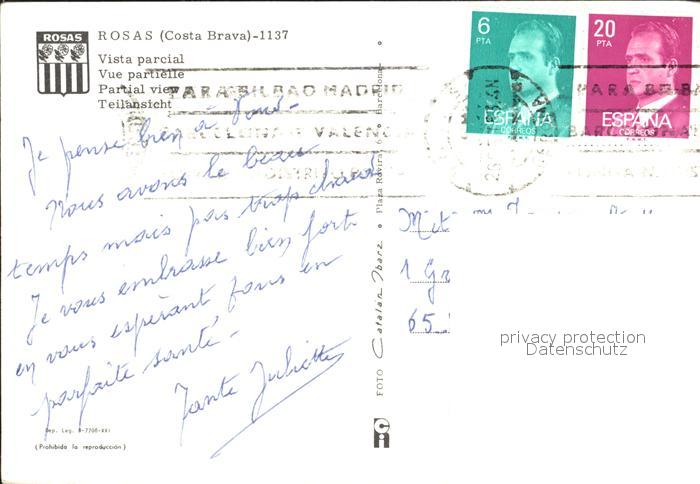 ROSAS
ROSAS (Costa Brava)-1137
Vista parcial
Vue partielle
Partial view
Teilansicht
6
PTA
ESPAÑA
CORREOS
20
PTA
ESPAÑA
CORREOS
PARA BILBAO MADRID
Je pense bien à vous-
Nous avons le beau
temps mais pas trop chaud
Je vous embrasse bien fort
en vous espérant tous en
parfaite santé-
Tante Juliette
Dep. Leg. B-7708-XXI
(Prohibida la reproducción)
FOTO Catalán Ibarz Plaza Rovira, 6 Barcelona
ci
1 Gr
65
privacy protection
Datenschutz